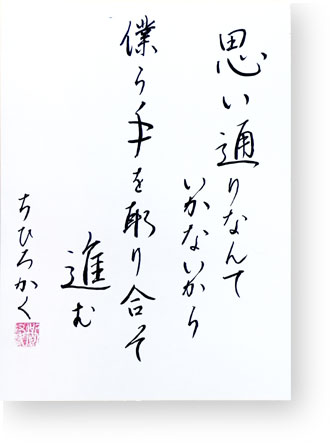 思い通りなんて
いかないから
僕ら手を取り合って
進む
ちひろかく